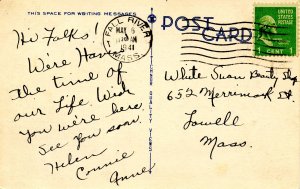 THIS SPACE FOR WRITING MESSAGES
POST CARD
FALL RIVER
MAY 6
1941
MASS.
UNITED STATES
POSTAGE
1 CENT
Hi Folks!
We're Having
the time of
our Life. Wish
you were here.
See you soon.
Helen
Connie
Anne
White Swan Beauty Shop
652 Merrimack St.
Lowell
Mass.
QUALITY VIEWS